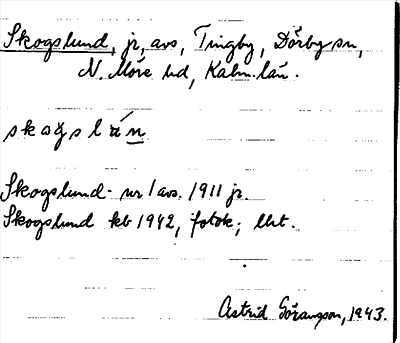 Skogslund, jr, avs, Tingby, Dörby sn,
N. Möre hd, Kalm. län.
skogslún
Skogslund - nr 1 avs. 1911 jr.
Skogslund kb 1942, fotok; lht.
Astrid Göransson, 1943.